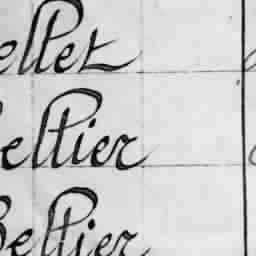 ellet
eltier
eltier